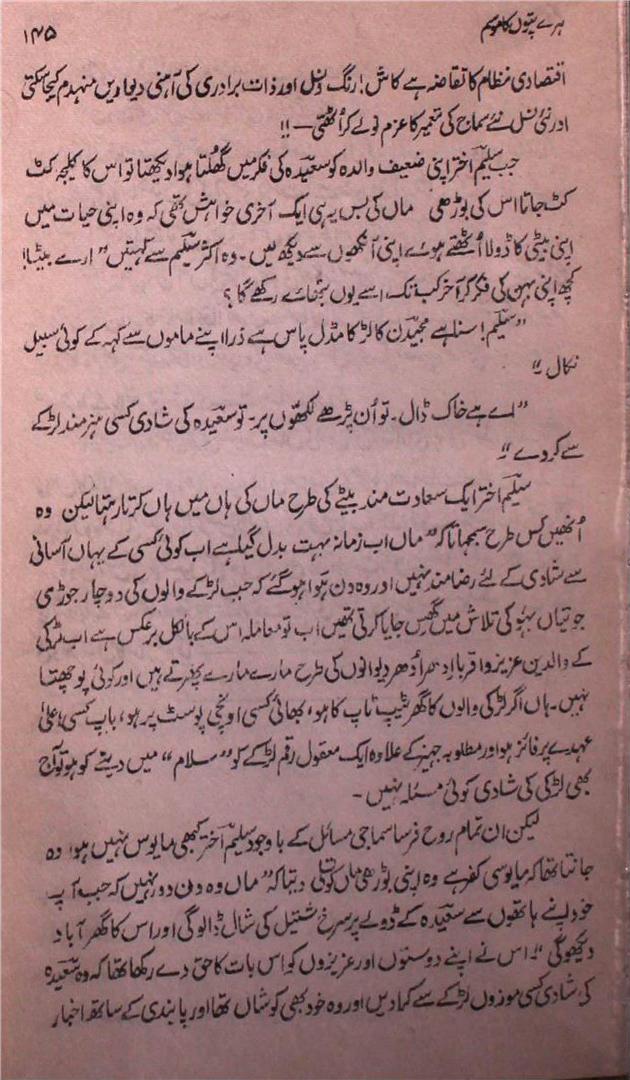 ۱۴۵
ہرے پتوں کا موسم
اقتصادی نظام کا تقاضہ ہے کاش! رنگ و نسل اور ذات برادری کی آہنی دیواریں منہدم کیجا سکتی
اور نئی نسل نئے سماج کی تعمیر کا عزم لے کر اُٹھتی —!!
جب سلیم اختر اپنی ضعیف والدہ کو سعیدہ کی فکر میں گھلتا ہوا دیکھتا تو اس کا کلیجہ کٹ
کٹ جاتا اس کی بوڑھی ماں کی بس یہی ایک آخری خواہش تھی کہ وہ اپنی حیات میں
اپنی بیٹی کا ڈولا اُٹھتے ہوئے اپنی آنکھوں سے دیکھ لیں۔ وہ اکثر سلیم سے کہتیں ”ارے بیٹا!
کچھ اپنی بہن کی فکر کر آخر کب تک اسے یوں بٹھائے رکھے گا؟
”سلیم! سنا ہے مجیدن کا لڑکا مڈل پاس ہے ذرا اپنے ماموں سے کہہ کے کوئی سبیل
نکال۔“
”اے ہے خاک ڈال۔ تو اُن پڑھے لکھوں پر۔ تو سعیدہ کی شادی کسی ہنر مند لڑکے
سے کر دے“۔
سلیم اختر ایک سعادت مند بیٹے کی طرح ماں کی ہاں میں ہاں کرتا رہتا لیکن وہ
اُنھیں کس طرح سمجھاتا کہ ”ماں اب زمانہ بہت بدل گیا ہے اب کوئی کسی کے یہاں آسانی
سے شادی کے لئے رضامند نہیں اور وہ دن ہوا ہو گئے کہ جب لڑکے والوں کی دو چار جوڑی
جوتیاں بہو کی تلاش میں گھس جایا کرتی تھیں اب تو معاملہ اس کے بالکل برعکس ہے اب لڑکی
کے والدین عزیز و اقربا اِدھر اُدھر دیوانوں کی طرح مارے مارے پھرتے ہیں اور کوئی پوچھتا
نہیں۔ ہاں اگر لڑکی والوں کا گھر ٹیپ ٹاپ کا ہو، بھائی کسی اونچی پوسٹ پر ہو، باپ کسی اعلیٰ
عہدے پر فائز ہو اور مطلوبہ جہیز کے علاوہ ایک معقول رقم لڑکے کو ”سلام“ میں دینے کو ہو تو آج
بھی لڑکی کی شادی کوئی مسئلہ نہیں۔
لیکن ان تمام روح فرسا سماجی مسائل کے باوجود سلیم اختر کبھی مایوس نہیں ہوا وہ
جانتا تھا کہ مایوسی کفر ہے وہ اپنی بوڑھی ماں کو تسلی دیتا کہ ”ماں وہ دن دور نہیں کہ جب آپ
خود اپنے ہاتھوں سے سعیدہ کے ڈولے پر سرخ شنیل کی شال ڈالوگی اور اس کا گھر آباد
دیکھوگی“۔ اس نے اپنے دوستوں اور عزیزوں کو اِس بات کا حق دے رکھا تھا کہ وہ سعیدہ
کی شادی کسی موزوں لڑکے سے کرا دیں اور وہ خود بھی کوشاں تھا اور پابندی کے ساتھ اخبار